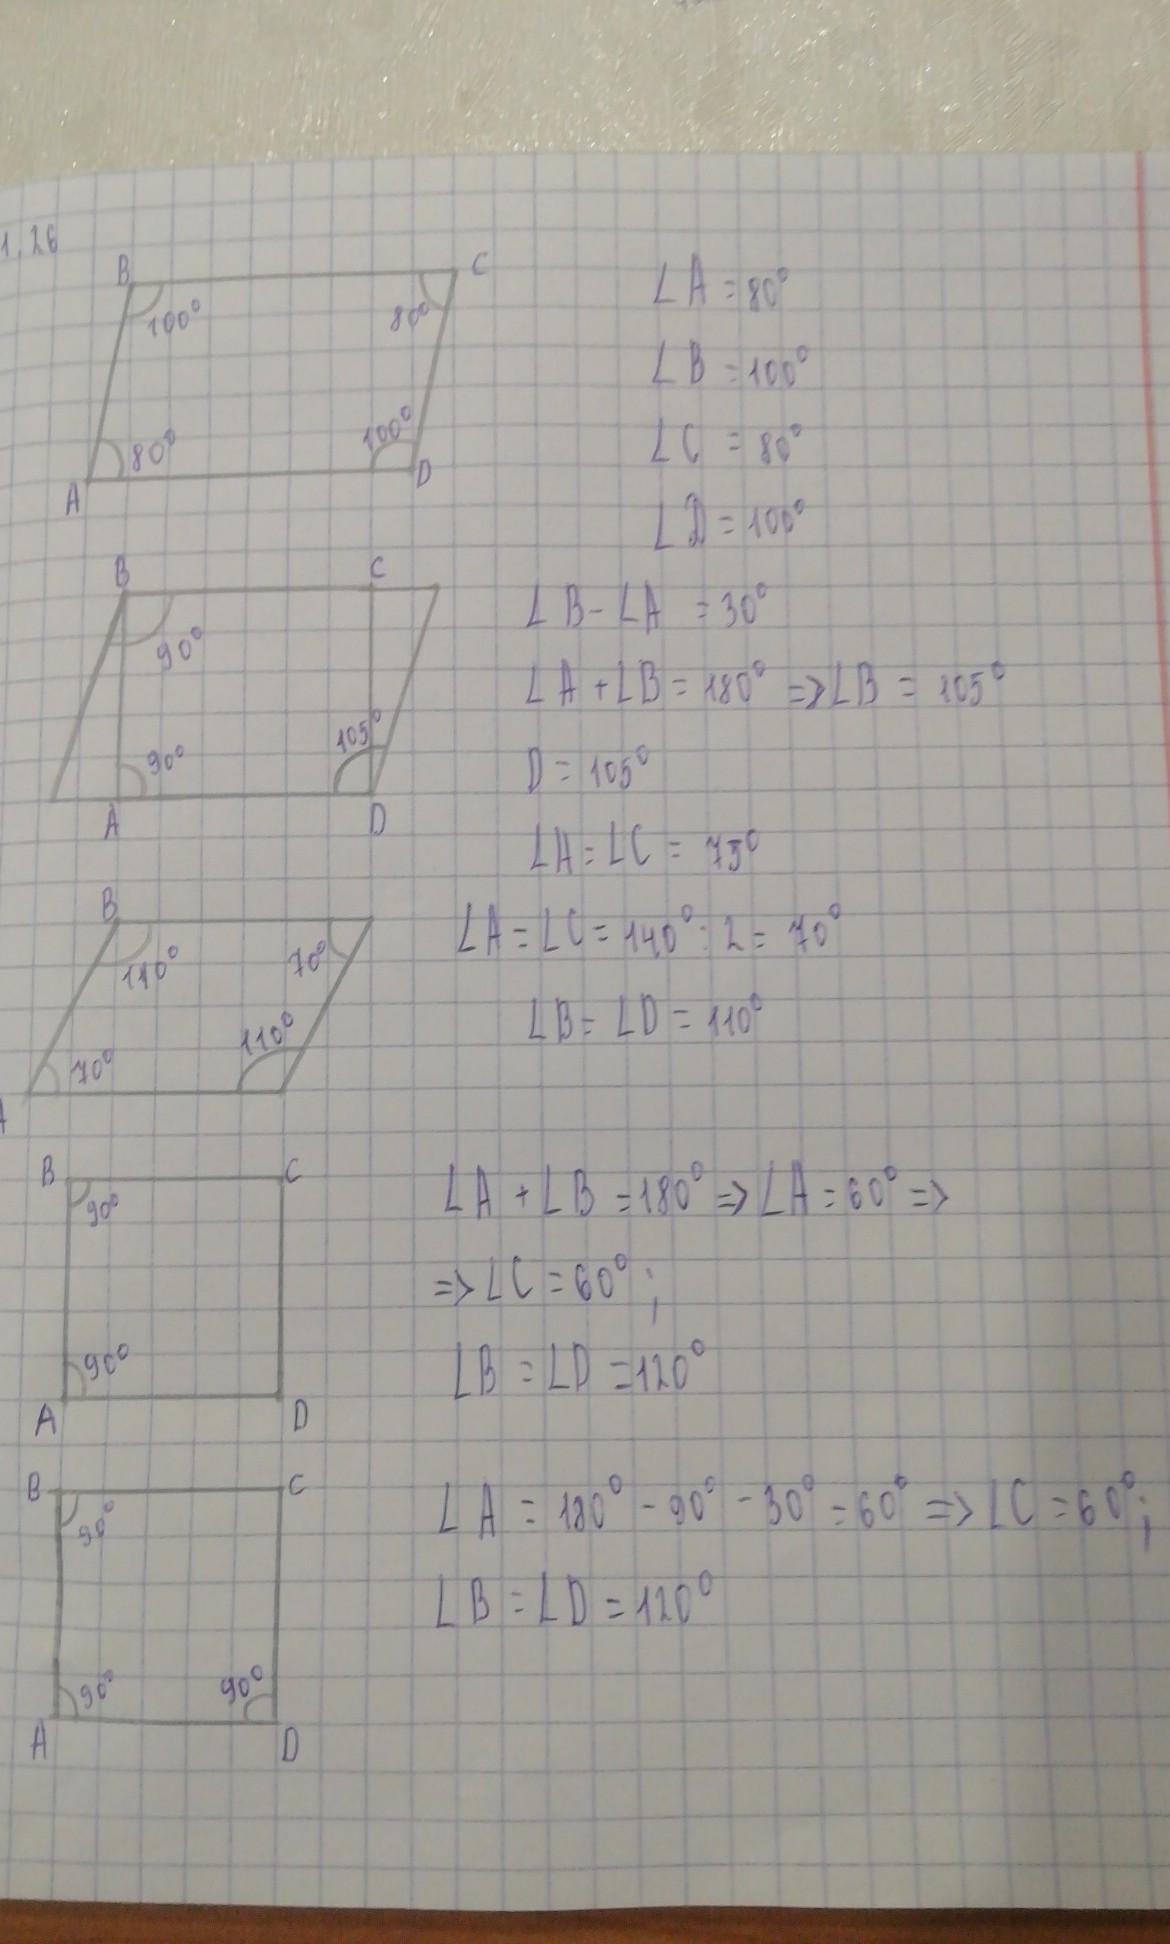 1.26
B
C
100°
80°
80°
100°
A
D
∠A = 80°
∠B = 100°
∠C = 80°
∠D = 100°
B
C
90°
105°
90°
A
D
∠B - ∠A = 30°
∠A + ∠B = 180° => ∠B = 105°
D = 105°
∠A = ∠C = 75°
B
110°
70°
110°
70°
A
∠A = ∠C = 140° : 2 = 70°
∠B = ∠D = 110°
B
C
90°
90°
A
D
∠A + ∠B = 180° => ∠A = 60° =>
=> ∠C = 60° ;
∠B = ∠D = 120°
B
C
90°
90°
90°
A
D
∠A = 180° - 90° - 30° = 60° => ∠C = 60° ;
∠B = ∠D = 120°